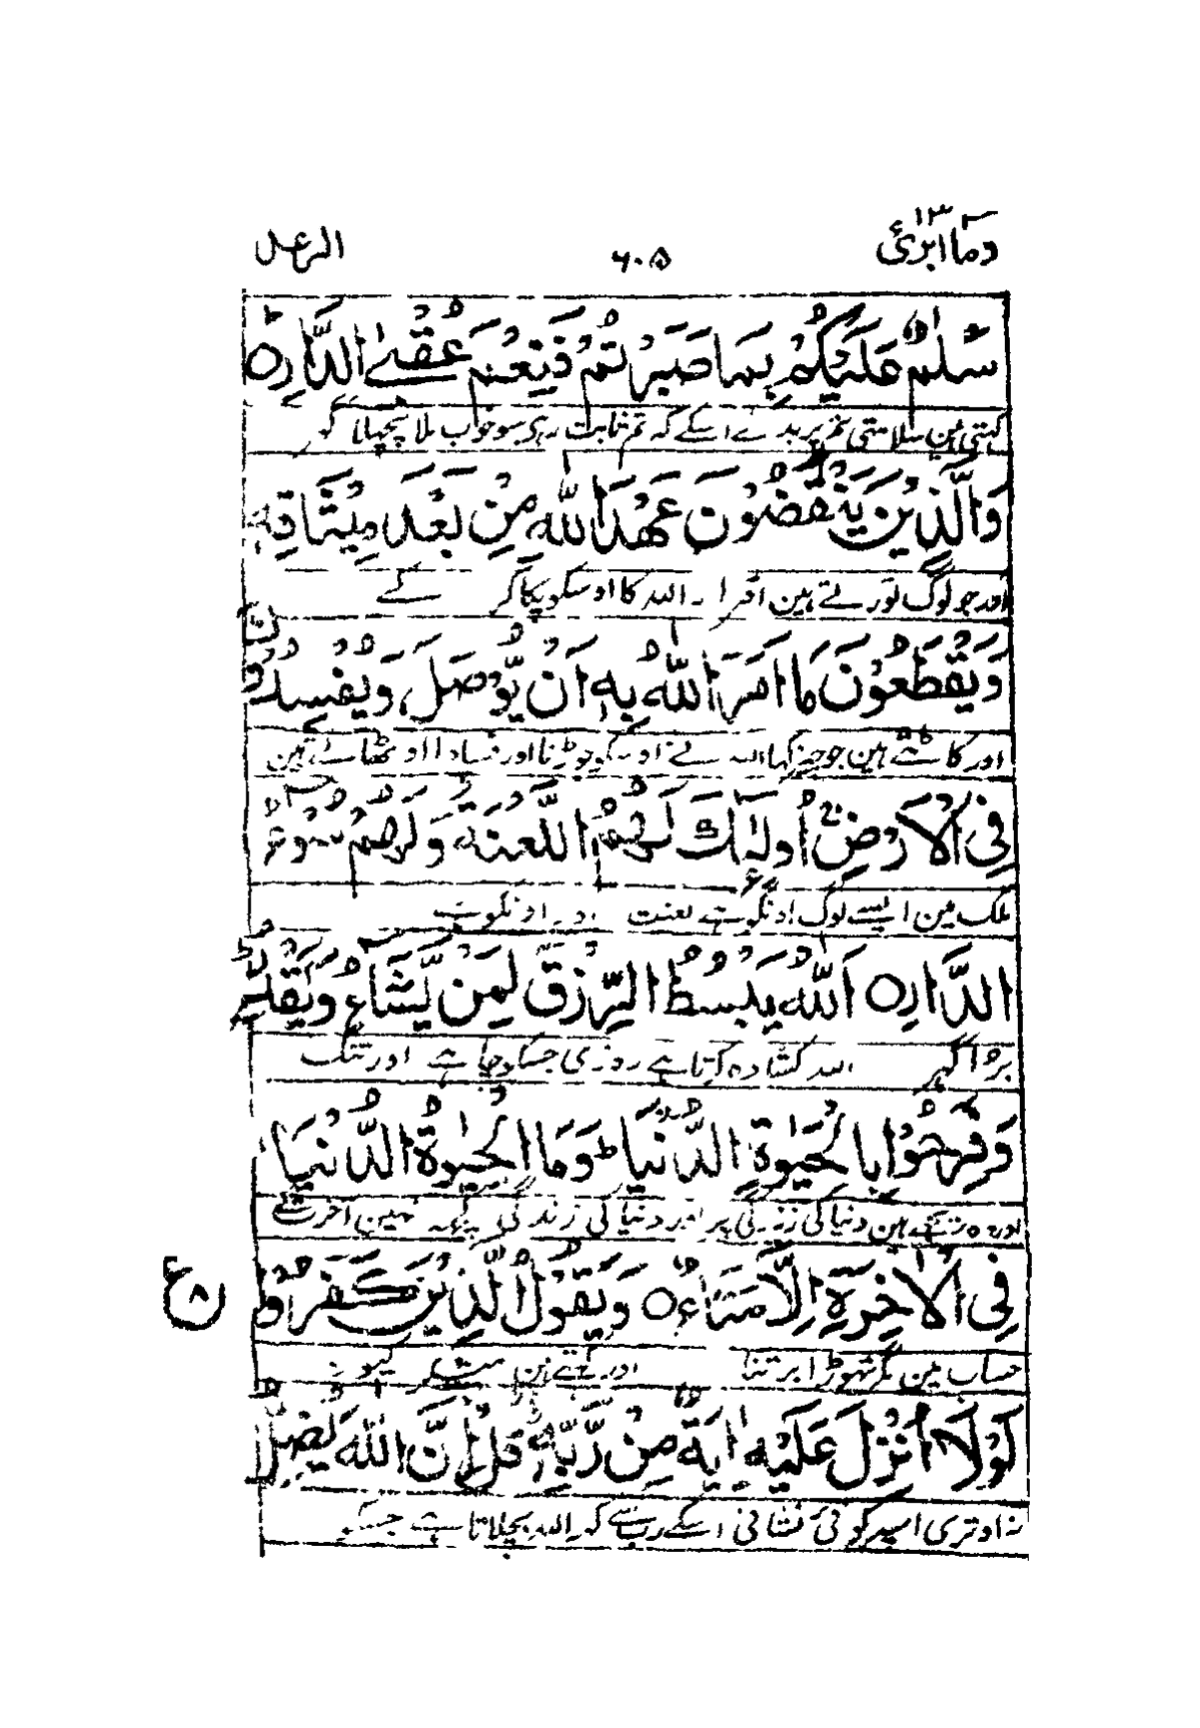 وما ابرئ ١٣ ٦٠٥ الرعد
سَلٰمٌ عَلَيْكُمْ بِمَا صَبَرْتُمْ فَنِعْمَ عُقْبَى الدَّارِ ۝
کہتی ہین سلامتی تم پر بدلے اسکے کہ تم ثابت رہے سو خوب ملا پچھلا گھر
وَالَّذِيْنَ يَنْقُضُوْنَ عَهْدَ اللّٰهِ مِنْۢ بَعْدِ مِيْثَاقِهٖ
اور جو لوگ توڑتے ہین اقرار اللہ کا اوسکو پکا کر کے
وَيَقْطَعُوْنَ مَا اَمَرَ اللّٰهُ بِهٖ اَنْ يُّوْصَلَ وَيُفْسِدُوْنَ
اور کاٹتے ہین جو چیز کہا اللہ نے اوسکو جوڑنا اور فساد اوٹھاتے ہین
فِى الْاَرْضِ اُولٰٓئِكَ لَهُمُ اللَّعْنَةُ وَلَهُمْ سُوْٓءُ
ملک مین ایسے لوگ اونکو ہے لعنت اور اونکو ہے
الدَّارِ ۝ اَللّٰهُ يَبْسُطُ الرِّزْقَ لِمَنْ يَّشَآءُ وَيَقْدِرُ
برا گہر اللہ کشادہ کرتا ہے روزی جسکو چاہے اور تنگ
وَفَرِحُوْا بِالْحَيٰوةِ الدُّنْيَا ط وَمَا الْحَيٰوةُ الدُّنْيَا
اور وہ ریجھے ہین دنیا کی زندگی پر اور دنیا کی زندگی کچھ نہین آخرت کے
فِى الْاٰخِرَةِ اِلَّا مَتَاعٌ ۝ وَيَقُوْلُ الَّذِيْنَ كَفَرُوْا
ع ٨
حساب مین مگر تھوڑا برتنا اور کہتے ہین منکر کیون
لَوْلَآ اُنْزِلَ عَلَيْهِ اٰيَةٌ مِّنْ رَّبِّهٖ قُلْ اِنَّ اللّٰهَ يُضِلُّ
نہ اوتری اسپر کوئی نشانی اسکے رب سے کہہ اللہ بچلاتا ہے جسکو